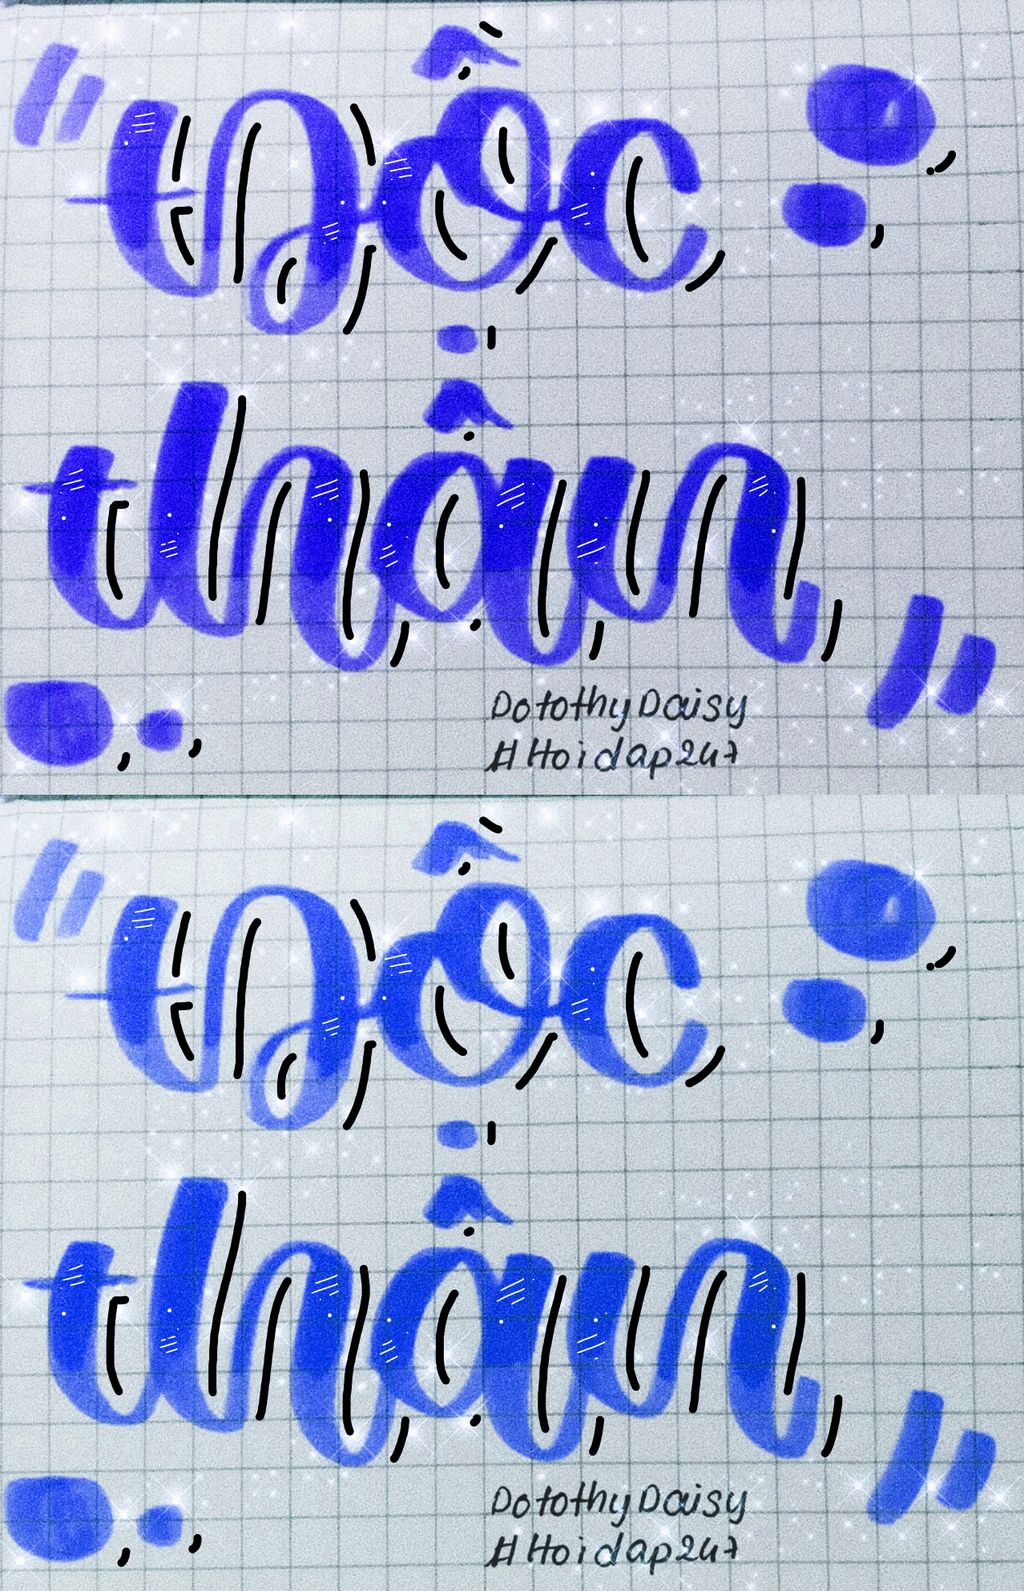 "Độc
thân"
DotothyDaisy
#Hoidap247
"Độc
thân"
DotothyDaisy
#Hoidap247